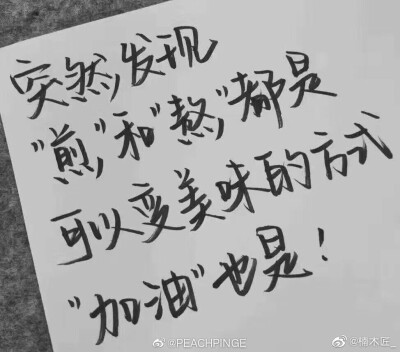 突然发现
“煎”和“熬”都是
可以变美味的方式
“加油”也是！
@PEACHPINGE
@楠木匠_